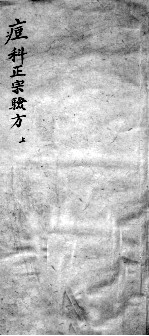 痘科正宗驗方 上